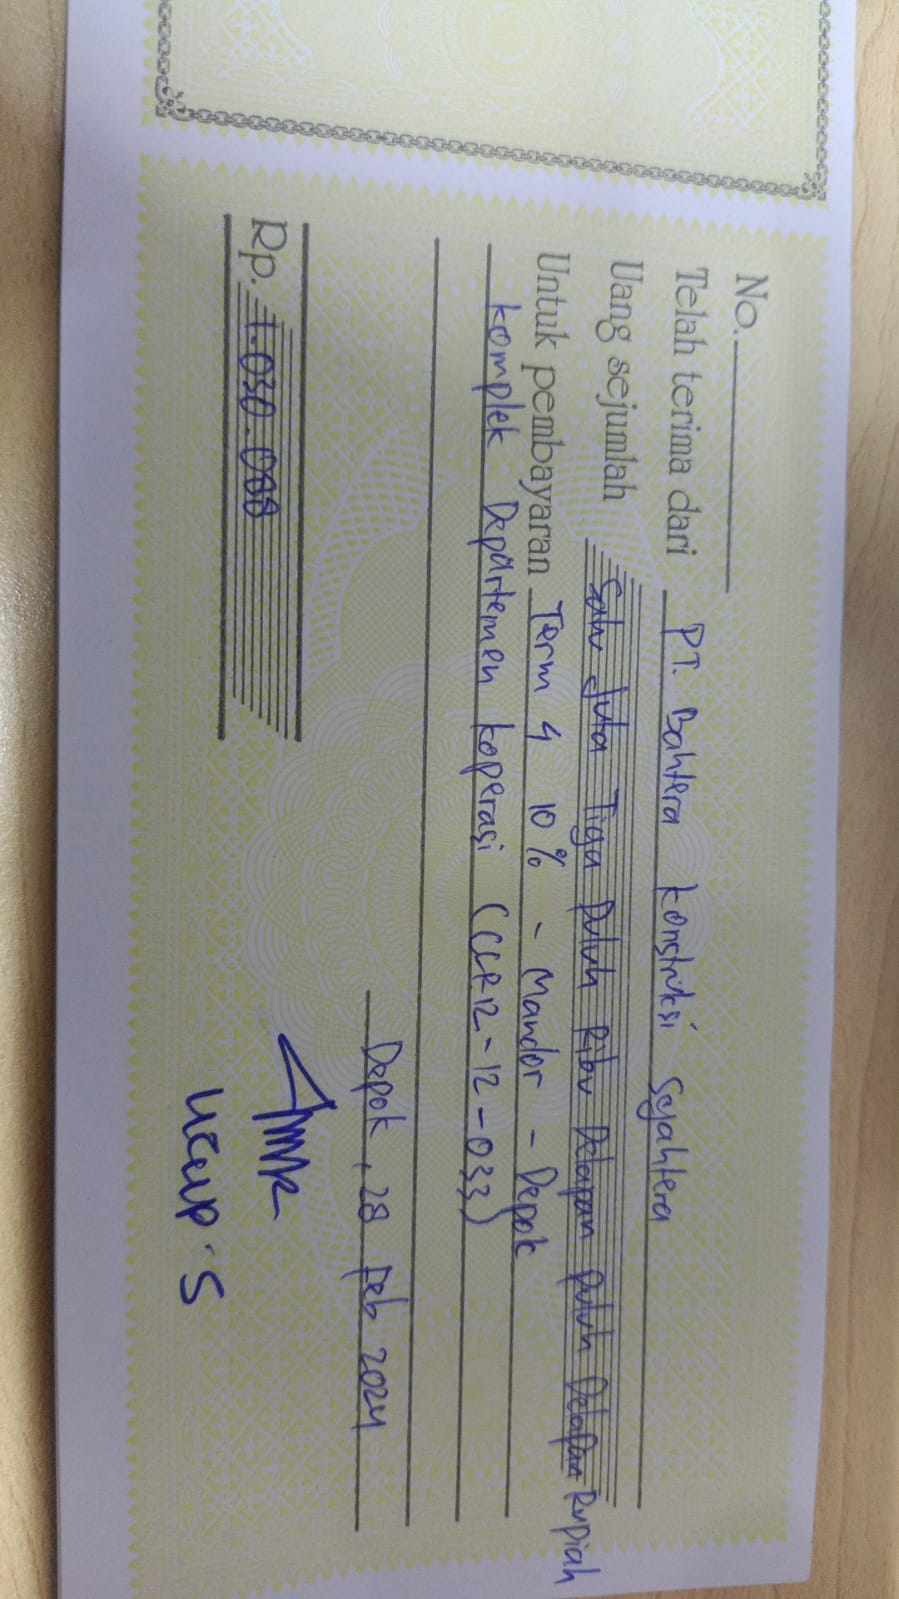 No.
Telah terima dari PT. Bahtera Konstruksi Sejahtera
Uang sejumlah Satu Juta Tiga Puluh Ribu Delapan Puluh Delapan Rupiah
Untuk pembayaran Term 4 10% - Mandor - Depok
Komplek Departemen Koperasi (CCR12-12-033)
Depok, 28 Feb 2024
Rp. 1.030.088
Ucup.S